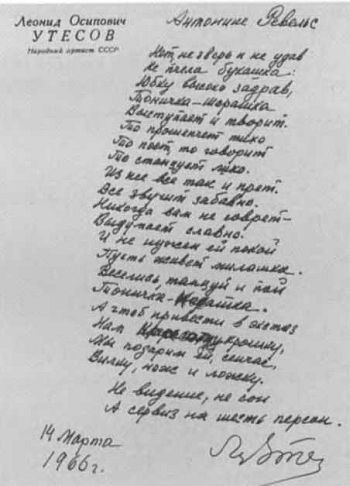 Леонид Осипович
УТЕСОВ
Народный артист СССР
Антонине Ревельс
Нет, не зверь и не удав
Не пчела букашка:
Юбку высоко задрав,
Тоничка-шарашка
Выступает и творит.
То прошепчет тихо
То поет, то говорит
То станцует лихо.
Из нее все так и прет.
Все звучит забавно.
Никогда вам не соврет-
Выдумает славно!
И не нужен ей покой
Пусть живет милашка.
Веселись, танцуй и пой
Тоничка-
А чтоб привести в экстаз
Нам крошку,
Мы подарим ей, сейчас,
Вилку, нож и ложку.
Не видение, не сон
А сервиз на шесть персон.
14 Марта
1966 г.